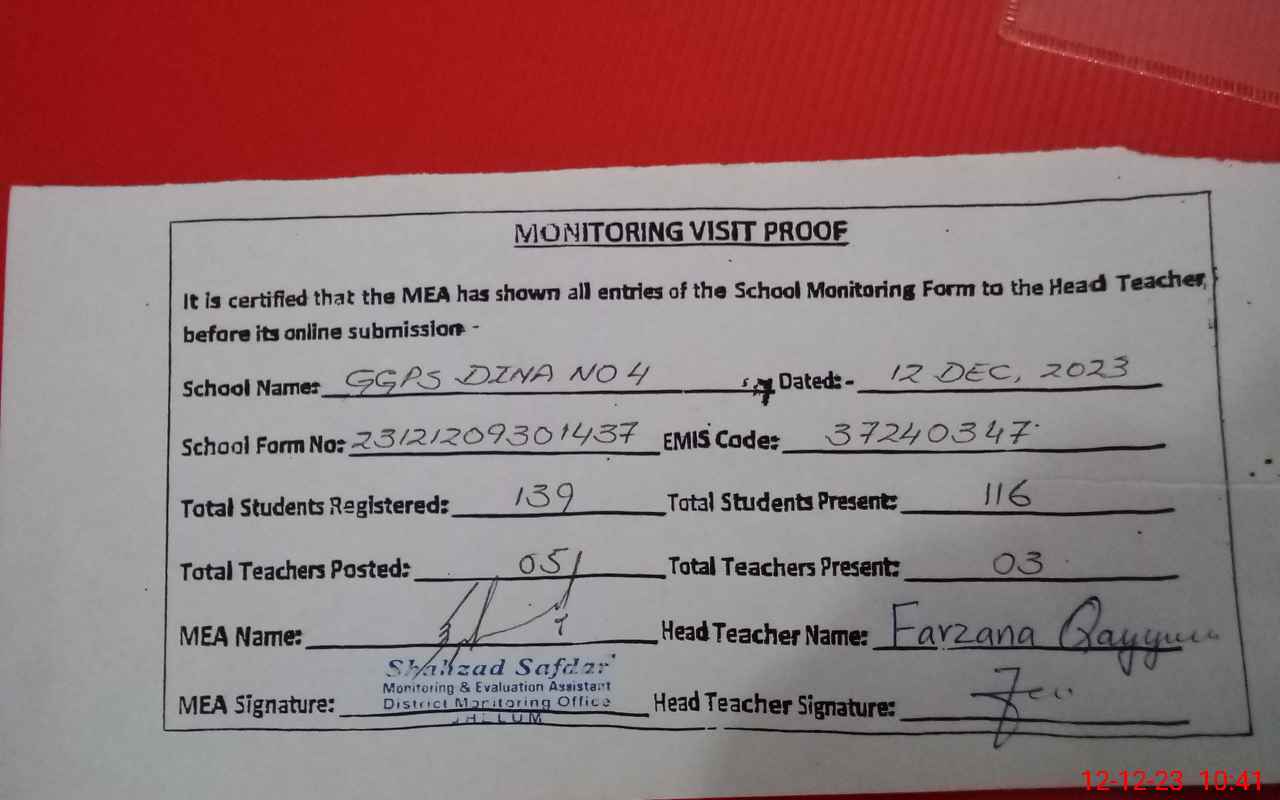 MONITORING VISIT PROOF
It is certified that the MEA has shown all entries of the School Monitoring Form to the Head Teacher
before its online submission -
School Name: GGPS DINA NO 4 Dated:- 12 DEC, 2023
School Form No: 23121209301437 EMIS Code: 37240347
Total Students Registered: 139 Total Students Present: 116
Total Teachers Posted: 05 Total Teachers Present: 03
MEA Name: Head Teacher Name: Farzana Qayyum
Shahzad Safdar
Monitoring & Evaluation Assistant
MEA Signature: District Monitoring Office Head Teacher Signature:
JHELUM
12-12-23 10:41